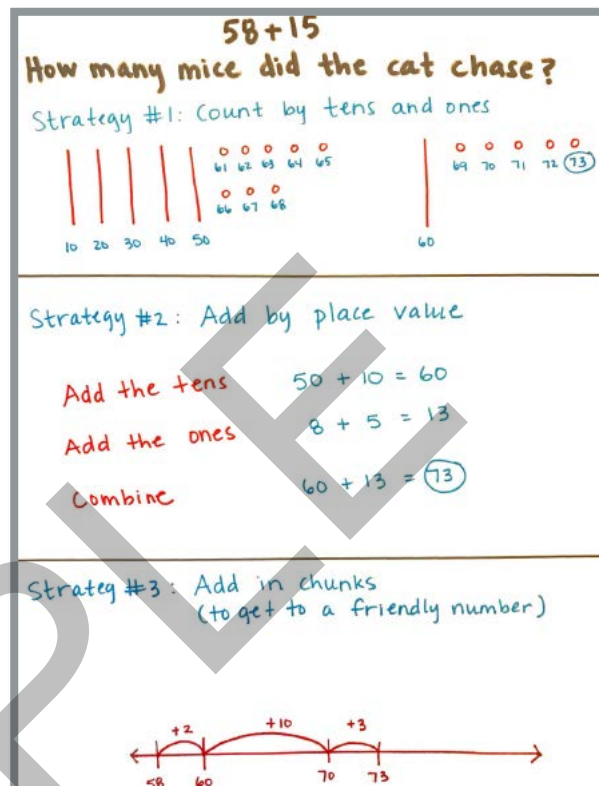 58+15
How many mice did the cat chase?
Strategy #1: Count by tens and ones
61 62 63 64 65
69 70 71 72 73
66 67 68
10 20 30 40 50
60
Strategy #2: Add by place value
Add the tens 50 + 10 = 60
Add the ones 8 + 5 = 13
Combine 60 + 13 = 73
Strateg #3: Add in chunks
(to get to a friendly number)
+2 +10 +3
58 60 70 73